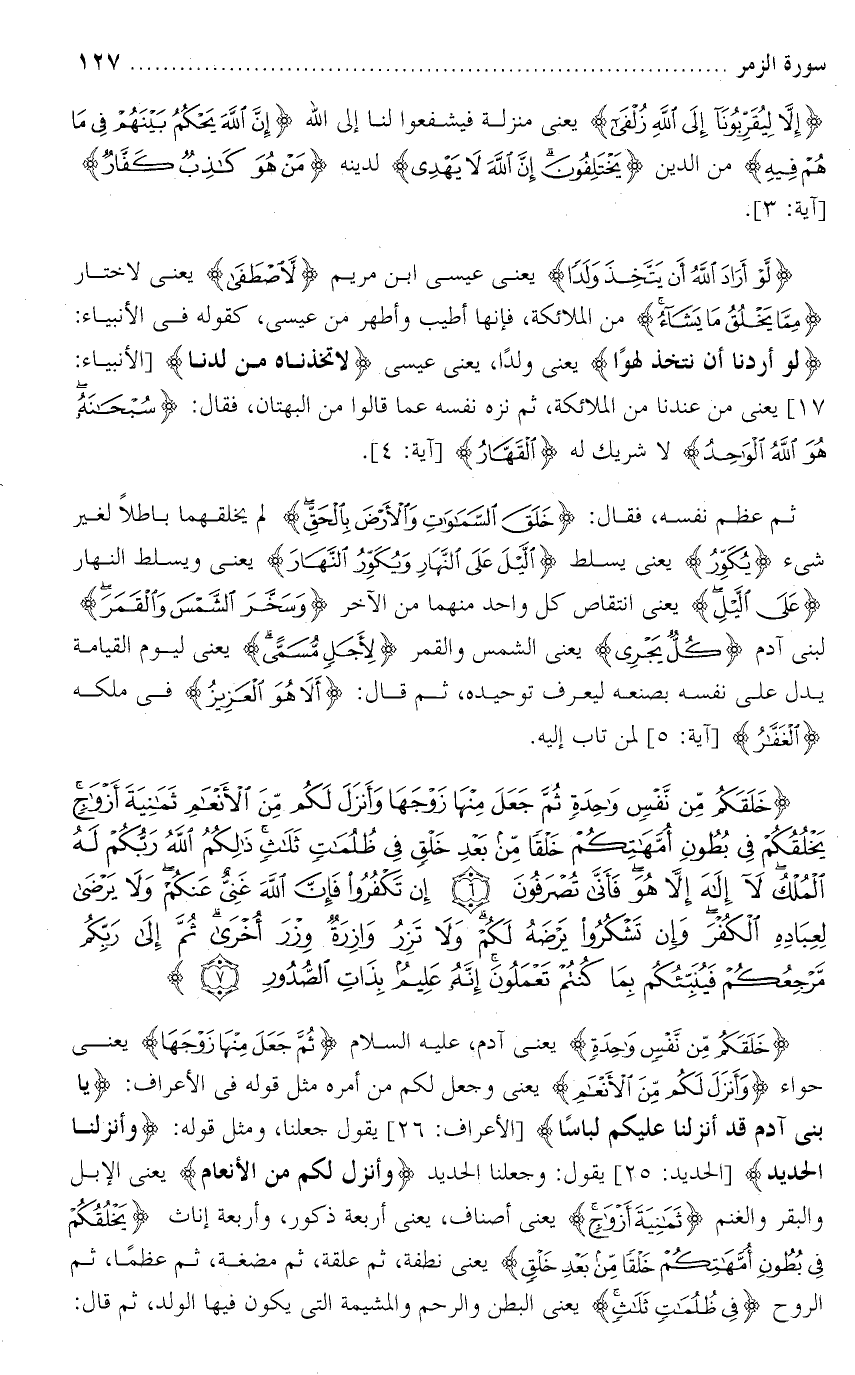 سورة الزمر ........................................................................ ١٢٧
﴿إِلَّا لِيُقَرِّبُونَآ إِلَى ٱللَّهِ زُلْفَىٰٓ﴾ يعنى منزلة فيشفعوا لنا إلى الله ﴿إِنَّ ٱللَّهَ يَحْكُمُ بَيْنَهُمْ فِى مَا
هُمْ فِيهِ﴾ من الدين ﴿يَخْتَلِفُونَ ۗ إِنَّ ٱللَّهَ لَا يَهْدِى﴾ لدينه ﴿مَنْ هُوَ كَٰذِبٌ كَفَّارٌ﴾
[آية: ٣].
﴿لَّوْ أَرَادَ ٱللَّهُ أَن يَتَّخِذَ وَلَدًا﴾ يعنى عيسى ابن مريم ﴿لَّٱصْطَفَىٰ﴾ يعنى لاختار
﴿مِمَّا يَخْلُقُ مَا يَشَآءُ ۚ﴾ من الملائكة، فإنها أطيب وأطهر من عيسى، كقوله فى الأنبياء:
﴿لو أردنا أن نتخذ لهوًا﴾ يعنى ولدًا، يعنى عيسى ﴿لاتخذناه من لدنا﴾ [الأنبياء:
١٧] يعنى من عندنا من الملائكة، ثم نزه نفسه عما قالوا من البهتان، فقال: ﴿سُبْحَٰنَهُۥ ۖ
هُوَ ٱللَّهُ ٱلْوَٰحِدُ﴾ لا شريك له ﴿ٱلْقَهَّارُ﴾ [آية: ٤].
ثم عظم نفسه، فقال: ﴿خَلَقَ ٱلسَّمَٰوَٰتِ وَٱلْأَرْضَ بِٱلْحَقِّ ۖ﴾ لم يخلقهما باطلاً لغير
شىء ﴿يُكَوِّرُ﴾ يعنى يسلط ﴿ٱلَّيْلَ عَلَى ٱلنَّهَارِ وَيُكَوِّرُ ٱلنَّهَارَ﴾ يعنى ويسلط النهار
﴿عَلَى ٱلَّيْلِ ۖ﴾ يعنى انتقاص كل واحد منهما من الآخر ﴿وَسَخَّرَ ٱلشَّمْسَ وَٱلْقَمَرَ ۖ﴾
لبنى آدم ﴿كُلٌّ يَجْرِى﴾ يعنى الشمس والقمر ﴿لِأَجَلٍ مُّسَمًّى ۗ﴾ يعنى ليوم القيامة
يدل على نفسه بصنعه ليعرف توحيده، ثم قال: ﴿أَلَا هُوَ ٱلْعَزِيزُ﴾ فى ملكه
﴿ٱلْغَفَّٰرُ﴾ [آية: ٥] لمن تاب إليه.
﴿خَلَقَكُم مِّن نَّفْسٍ وَٰحِدَةٍ ثُمَّ جَعَلَ مِنْهَا زَوْجَهَا وَأَنزَلَ لَكُم مِّنَ ٱلْأَنْعَٰمِ ثَمَٰنِيَةَ أَزْوَٰجٍ ۚ
يَخْلُقُكُمْ فِى بُطُونِ أُمَّهَٰتِكُمْ خَلْقًا مِّنۢ بَعْدِ خَلْقٍ فِى ظُلُمَٰتٍ ثَلَٰثٍ ۚ ذَٰلِكُمُ ٱللَّهُ رَبُّكُمْ لَهُ
ٱلْمُلْكُ ۖ لَآ إِلَٰهَ إِلَّا هُوَ ۖ فَأَنَّىٰ تُصْرَفُونَ ٦ إِن تَكْفُرُوا۟ فَإِنَّ ٱللَّهَ غَنِىٌّ عَنكُمْ ۖ وَلَا يَرْضَىٰ
لِعِبَادِهِ ٱلْكُفْرَ ۖ وَإِن تَشْكُرُوا۟ يَرْضَهُ لَكُمْ ۗ وَلَا تَزِرُ وَازِرَةٌ وِزْرَ أُخْرَىٰ ۗ ثُمَّ إِلَىٰ رَبِّكُم
مَّرْجِعُكُمْ فَيُنَبِّئُكُم بِمَا كُنتُمْ تَعْمَلُونَ ۚ إِنَّهُۥ عَلِيمٌۢ بِذَاتِ ٱلصُّدُورِ ٧ ﴾
﴿خَلَقَكُم مِّن نَّفْسٍ وَٰحِدَةٍ﴾ يعنى آدم، عليه السلام ﴿ثُمَّ جَعَلَ مِنْهَا زَوْجَهَا﴾ يعنى
حواء ﴿وَأَنزَلَ لَكُم مِّنَ ٱلْأَنْعَٰمِ﴾ يعنى وجعل لكم من أمره مثل قوله فى الأعراف: ﴿يا
بنى آدم قد أنزلنا عليكم لباسًا﴾ [الأعراف: ٢٦] يقول جعلنا، ومثل قوله: ﴿وأنزلنا
الحديد﴾ [الحديد: ٢٥] يقول: وجعلنا الحديد ﴿وأنزل لكم من الأنعام﴾ يعنى الإبل
والبقر والغنم ﴿ثَمَٰنِيَةَ أَزْوَٰجٍ ۚ﴾ يعنى أصناف، يعنى أربعة ذكور، وأربعة إناث ﴿يَخْلُقُكُمْ
فِى بُطُونِ أُمَّهَٰتِكُمْ خَلْقًا مِّنۢ بَعْدِ خَلْقٍ﴾ يعنى نطفة، ثم علقة، ثم مضغة، ثم عظمًا، ثم
الروح ﴿فِى ظُلُمَٰتٍ ثَلَٰثٍ ۚ﴾ يعنى البطن والرحم والمشيمة التى يكون فيها الولد، ثم قال: